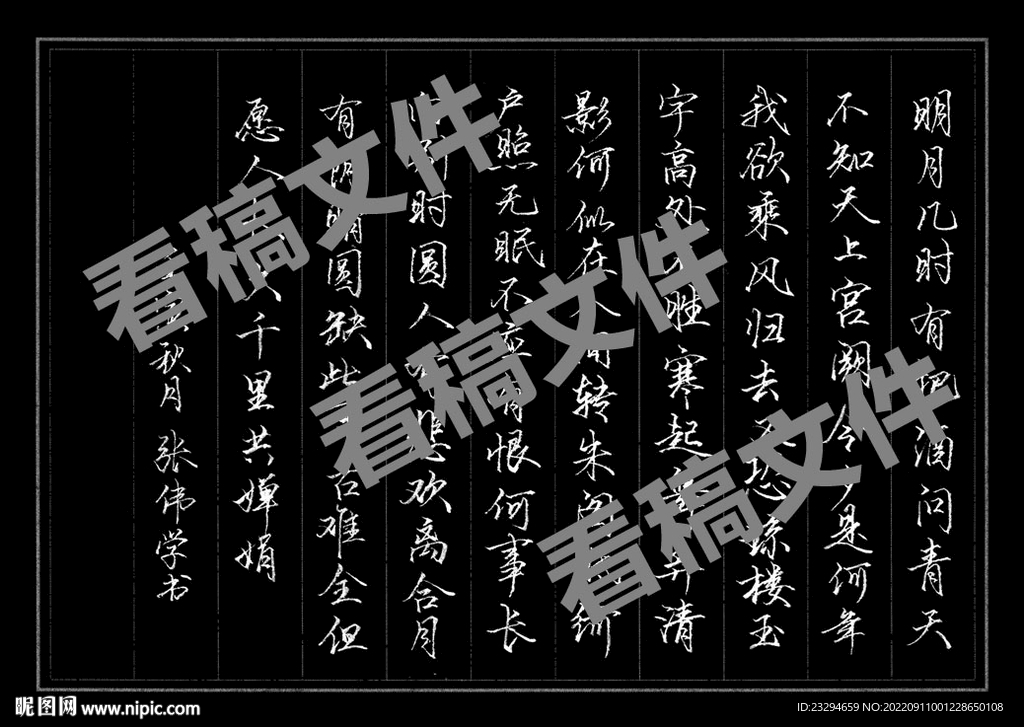 明月几时有把酒问青天
不知天上宫阙今夕是何年
我欲乘风归去又恐琼楼玉
宇高处不胜寒起舞弄清
影何似在人间转朱阁 绮
户照无眠不应有恨何事长
向别时圆人有悲欢离合月
有阴晴圆缺此事古难全但
愿人长久千里共婵娟
秋月 张伟学书
看稿文件
看稿文件
看稿文件
昵图网 www.nipic.com
ID:23294659 NO:20220911001228650108